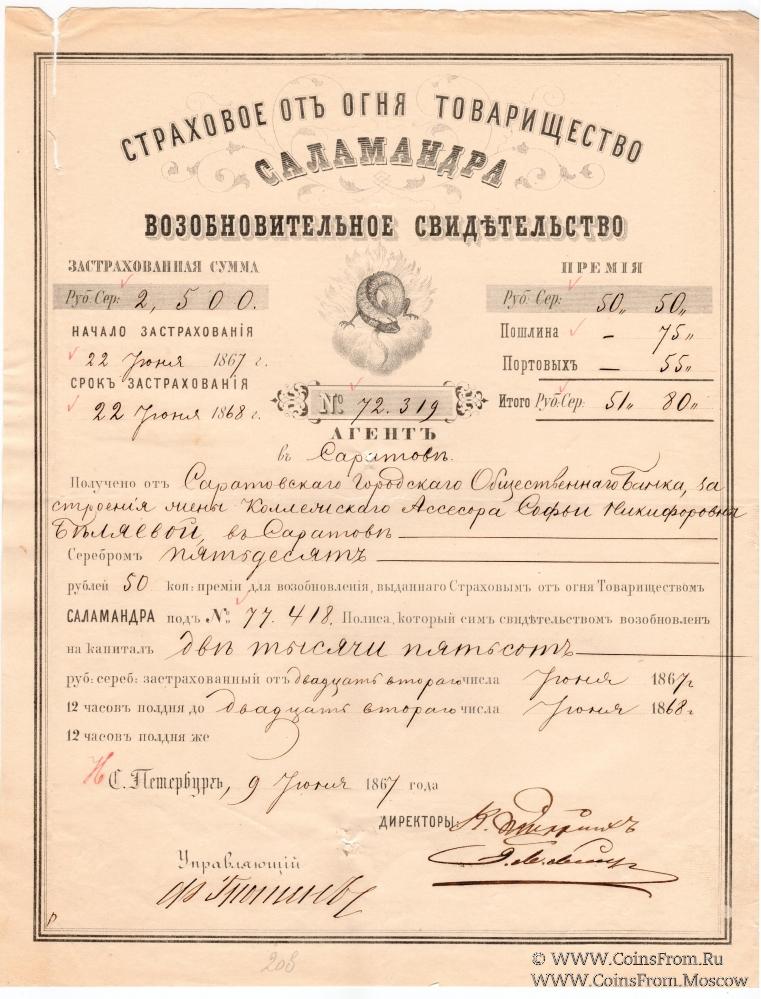 СТРАХОВОЕ ОТЪ ОГНЯ ТОВАРИЩЕСТВО
САЛАМАНДРА
ВОЗОБНОВИТЕЛЬНОЕ СВИДѢТЕЛЬСТВО
ЗАСТРАХОВАННАЯ СУММА
Руб: Сер: 2,500.
НАЧАЛО ЗАСТРАХОВАНІЯ
22 Іюня 1867 г.
СРОКЪ ЗАСТРАХОВАНІЯ
22 Іюня 1868 г.
ПРЕМІЯ
Руб: Сер: 50„ 50„
Пошлина – 75„
Портовыхъ – 55„
Итого Руб: Сер: 51„ 80„
№ 72.319
АГЕНТЪ
въ Саратовѣ.
Получено отъ Саратовскаго Городскаго Общественнаго Банка, за
строенія жены Коллежскаго Ассесора Софьи Никифоровны
Бѣляевой, въ Саратовѣ
Серебромъ пятьдесятъ
рублей 50 коп: преміи для возобновленія, выданнаго Страховымъ отъ огня Товариществомъ
САЛАМАНДРА подъ № 77.418. Полиса, который симъ свидѣтельствомъ возобновленъ
на капиталъ двѣ тысячи пятьсотъ
руб: сереб: застрахованный отъ двадцать втораго числа Іюня 1867 г
12 часовъ полдня до двадцать втораго числа Іюня 1868 г
12 часовъ полдня же
С. Петербургъ, 9 Іюня 1867 года
ДИРЕКТОРЫ:
Управляющій
208
© WWW.CoinsFrom.Ru
WWW.CoinsFrom.Moscow